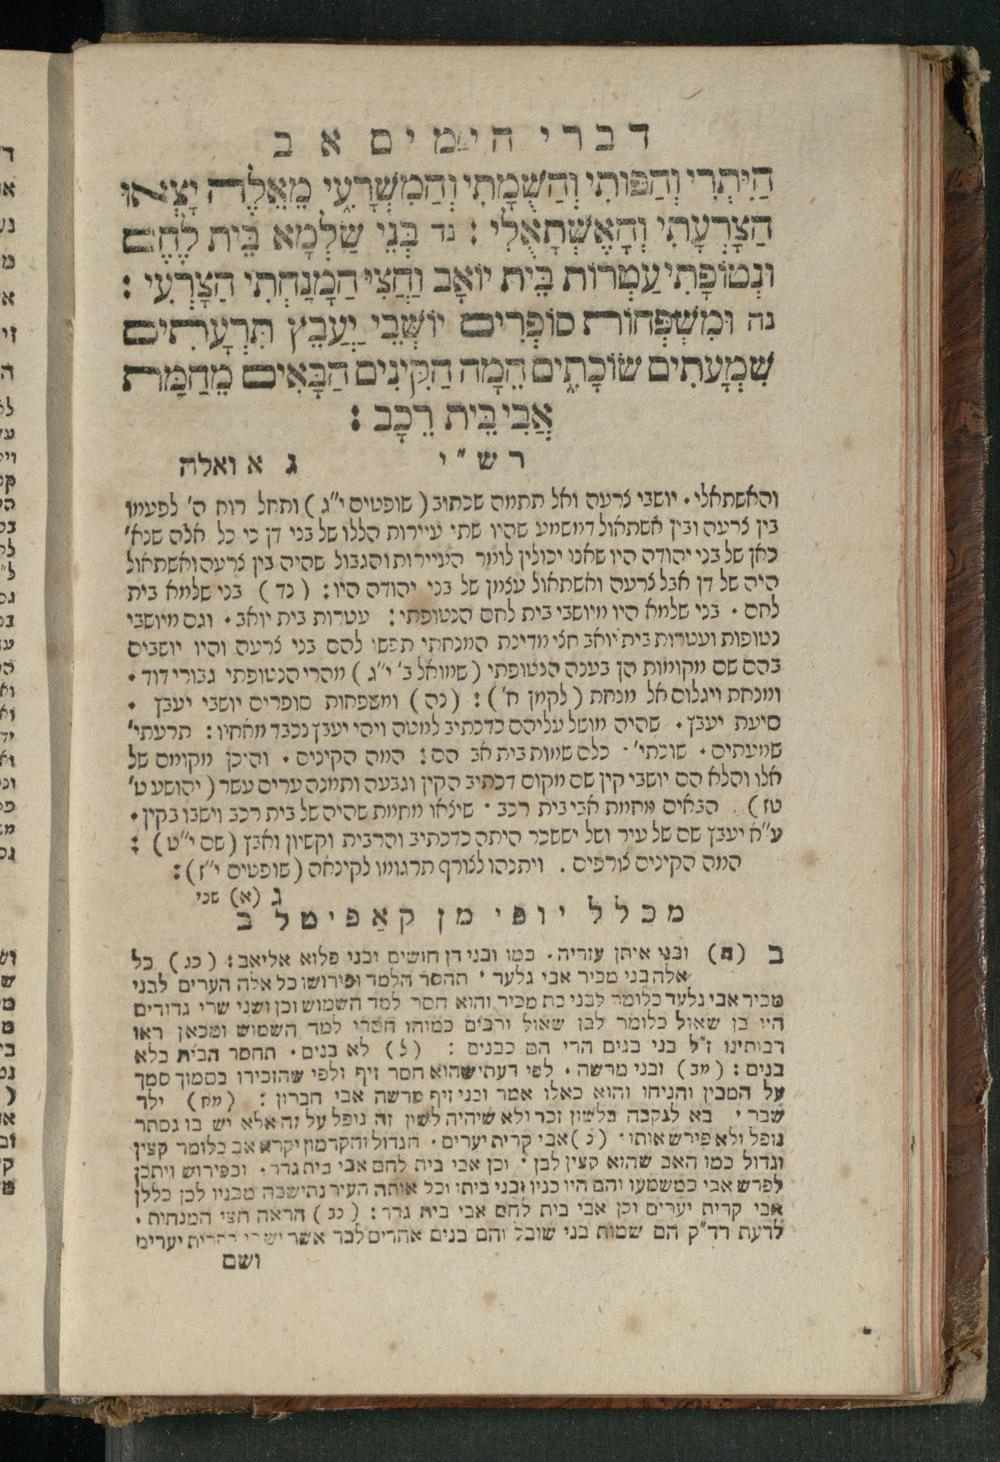 דברי הימים א ב
הַיִּתְרִי וְהַפּוּתִי וְהַשֻּׁמָתִי וְהַמִּשְׁרָעִי מֵאֵלֶּה יָצְאוּ
הַצָּרְעָתִי וְהָאֶשְׁתָּאֻלִי : נד בְּנֵי שַׂלְמָא בֵּית לֶחֶם
וּנְטוֹפָתִי עַטְרוֹת בֵּית יוֹאָב וַחֲצִי הַמָּנַחְתִּי הַצָּרְעִי :
נה וּמִשְׁפְּחוֹת סוֹפְרִים יוֹשְׁבֵי יַעְבֵּץ תִּרְעָתִים
שִׁמְעָתִים שׂוֹכָתִים הֵמָּה הַקִּינִים הַבָּאִים מֵחַמַּת
אֲבִי בֵית רֵכָב :
רש"י
ג א ואלה
והאשתאלי . יושבי צרעה ואל תתמה שכתוב ( שופטים י"ג ) ותחל רוח ה' לפעמו
בין צרעה ובין אשתאול דמשמע שהיו שתי עיירות הללו של בני דן כי כל אלה שנא'
כאן של בני יהודה היו שאנו יכולין לומר העיירות והגבול שהיה בין צרעה ואשתאול
היה של דן אבל צרעה ואשתאול עצמן של בני יהודה היו : ( נד ) בני שלמא בית
לחם . בני שלמא היו מיושבי בית לחם הנטופתי : עטרות בית יואב . וגם מיושבי
נטופות ועטרות בית יואב חצי מדינת המנחתי תפשו להם בני צרעה והיו יושבים
בהם שם מקומות הן בענה הנטופתי ( שמואל ב' י"ג ) מהרי הנטופתי גבורי דוד .
ומנחת ויגלום אל מנחת ( לקמן ח' ) : ( נה ) ומשפחות סופרים יושבי יעבץ .
סיעת יעבץ . שהיה מושל עליהם כדכתיב למטה ויהי יעבץ נכבד מאחיו : תרעתי'
שמעתים . שוכתי' . כלם שמות בית אב הם : המה הקינים . והיכן מקומם של
אלו והלא הם יושבי קין שם מקום דכתיב הקין וגבעה ותמנה ערים עשר ( יהושע ט'
טז ) . הבאים מחמת אבי בית רכב . שיצאו מחמת שהיה של בית רכב וישבו בקין .
ע"א יעבץ שם של עיר ושל יששכר היתה כדכתיב והרבית וקשיון ואבץ ( שם י"ט ) :
המה הקינים צורפים . ויתנהו לצורף תרגומו לקינאה ( שופטים י"ז ) :
ג (א) שני
מכלל יופי מן קאַפיטל ב
ב (ח) ובני איתן עזריה . כמו ובני דן חושים ובני פלוא אליאב : ( כג ) כל
אלה בני מכיר אבי גלעד . תהסר הלמד ופירושו כל אלה הערים לבני
מכיר אבי גלעד כלומר לבני בת מכיר והוא חסר למד השמוש וכן ושני שרי גדודים
היו בן שאול כלומר לבן שאול ורבים כמוהו חסרי למד השמוש ומכאן ראו
רבותינו ז"ל בני בנים הרי הם כבנים : ( ל ) לא בנים . תחסר הבית כלא
בנים : ( מב ) ובני מרשה . לפי דעתי שהוא חסר זיף ולפי שהזכירו בסמוך סמך
על המבין והניחו והוא כאלו אמר ובני זיף מרשה אבי חברון : ( מח ) ילד
שבר . בא לנקבה בלשון זכר ולא שיהיה לשון זה נופל על זה אלא יש בו נסתר
נופל ולא פירש אותו . ( נ ) אבי קרית יערים . הגדול והקדמון יקרא אב כלומר קצין
וגדול כמו האב שהוא קצין לבן . וכן אבי בית לחם אבי בית גדר . וכפירוש ויתכן
לפרש אבי כמשמעו והם היו בניו ובני ביתו וכל אותה העיר נתישבה מבניו לכן כללן
אבי קרית יערים וכן אבי בית לחם אבי בית גדר : ( נב ) הראה חצי המנחית .
לדעת רד"ק הם שמות בני שובל והם בנים אחרים לבד אשר קרית יערים
ושם